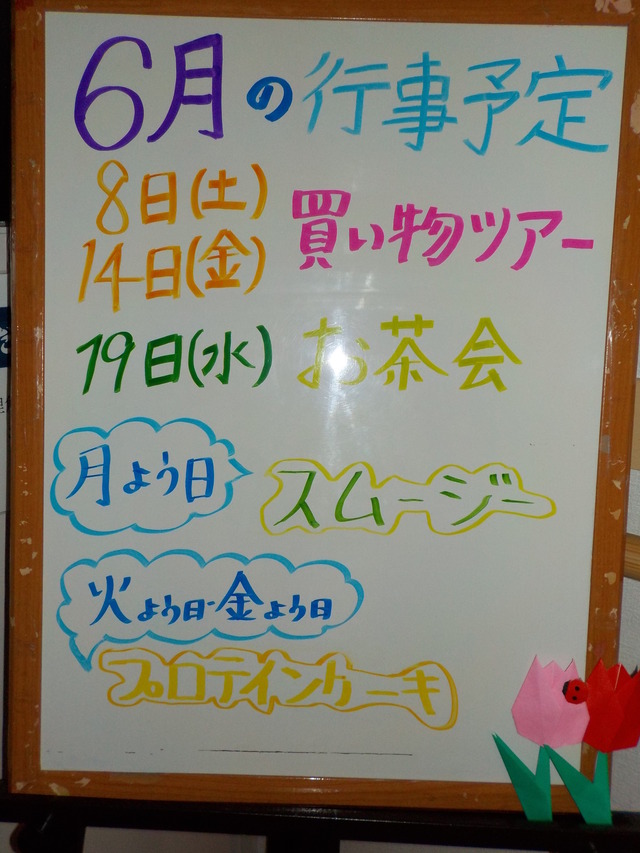 6月の行事予定
8日(土)
14日(金)
買い物ツアー
19日(水) お茶会
月よう日
スムージー
火よう日・金よう日
プロテインケーキ